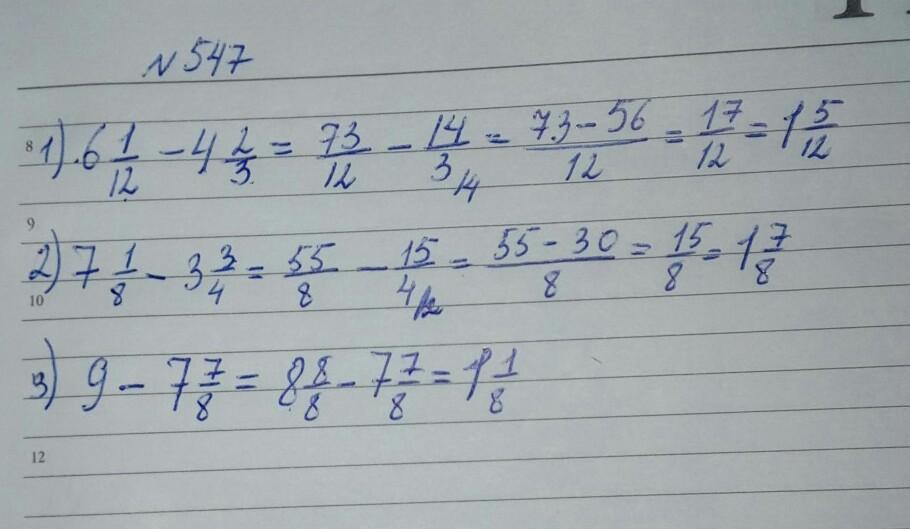 N 547
8 1) 6 1/12 - 4 2/3 = 73/12 - 14/3 /4 = 73-56/12 = 17/12 = 1 5/12
9
2) 7 1/8 - 3 3/4 = 55/8 - 15/4 /2 = 55-30/8 = 15/8 = 1 7/8
10
3) 9 - 7 7/8 = 8 8/8 - 7 7/8 = 1 1/8
12